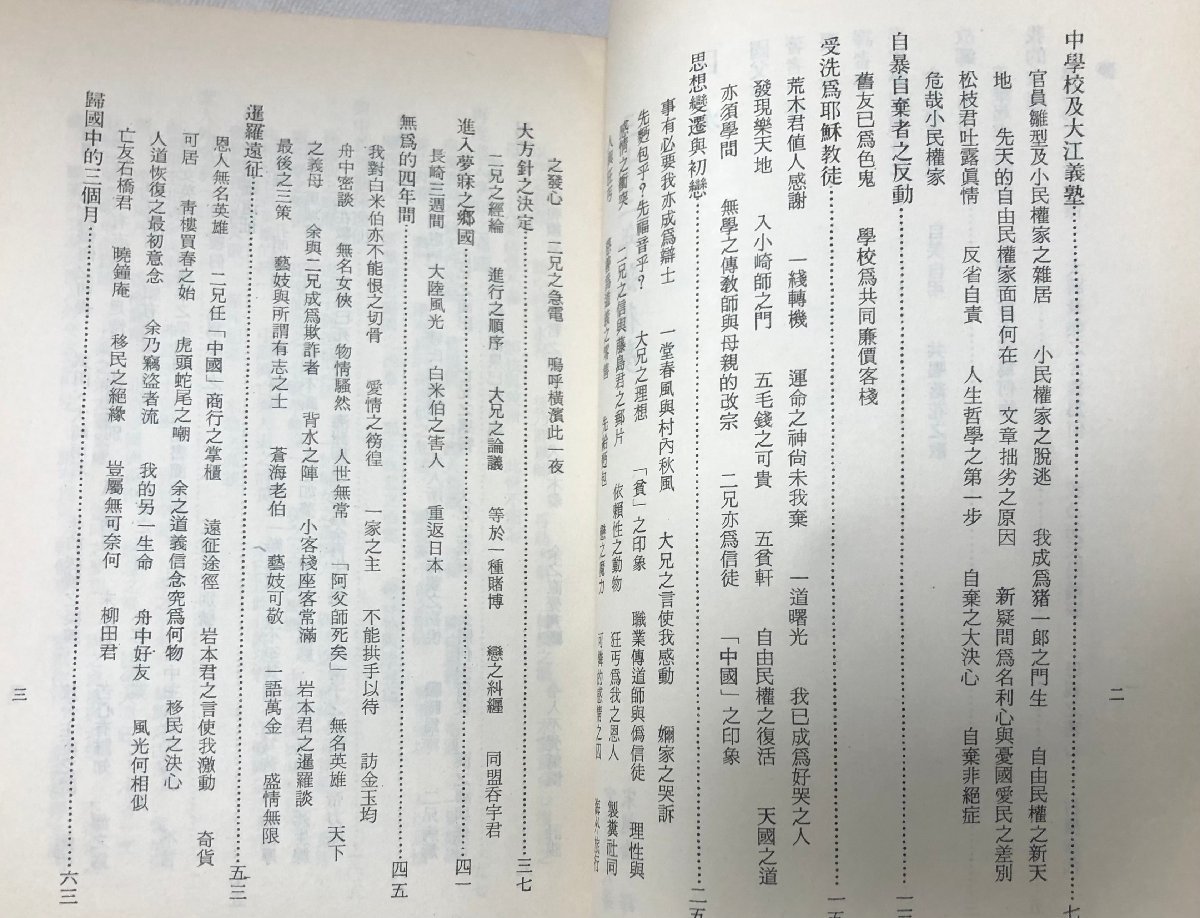 二
中學校及大江義塾……………七
官員雛型及小民權家之雜居　小民權家之脫逃　我成爲猪一郎之門生　自由民權之新天
地　先天的自由民權家面目何在　文章拙劣之原因　新疑問爲名利心與憂國愛民之差別
松枝君吐露眞情　反省自責　人生哲學之第一步　自棄之大決心　自棄非絕症
危哉小民權家
自暴自棄者之反動……………一三
舊友已爲色鬼　學校爲共同廉價客棧
受洗爲耶穌教徒……………一五
荒木君値人感謝　一綫轉機　運命之神尙未我棄　一道曙光　我已成爲好哭之人
發現樂天地　入小崎師之門　五毛錢之可貴　五貧軒　自由民權之復活　天國之道
亦須學問　無學之傳敎師與母親的改宗　二兄亦爲信徒　「中國」之印象
思想變遷與初戀……………二五
事有必要我亦成爲辯士　一堂春風與村內秋風　大兄之言使我感動　嫻家之哭訴
先麵包乎？先福音乎？　大兄之理想　「貧」之印象　職業傳道師與僞信徒　理性與
感情之衝突　二兄之信與藤島君之郵片　依賴性之動物　狂丐爲我之恩人　製糞社同
之發心　二兄之急電　嗚呼橫濱此一夜
大方針之決定……………三七
二兄之經綸　進行之順序　大兄之論議　等於一種賭博　戀之糾纒　同盟吞宇君
進入夢寐之鄉國……………四一
長崎三週間　大陸風光　白米伯之害人　重返日本
無爲的四年間……………四五
我對白米伯亦不能恨之切骨　愛情之徬徨　一家之主　不能拱手以待　訪金玉均
舟中密談　無名女俠　物情騷然　人世無常　「阿父師死矣」　無名英雄　天下
之義母　余與二兄成爲欺詐者　背水之陣　小客棧座客常滿　岩本君之暹羅談
最後之三策　藝妓與所謂有志之士　蒼海老伯　藝妓可敬　一語萬金　盛情無限
暹羅遠征……………五三
恩人無名英雄　二兄任「中國」商行之掌櫃　遠征途徑　岩本君之言使我激動　奇貨
可居　靑樓買春之始　虎頭蛇尾之嘲　余之道義信念究爲何物　移民之決心
人道恢復之最初意念　余乃竊盜者流　我的另一生命　舟中好友　風光何相似
亡友石橋君　曉鐘庵　移民之絕緣　豈屬無可奈何　柳田君
歸國中的三個月……………六三
三